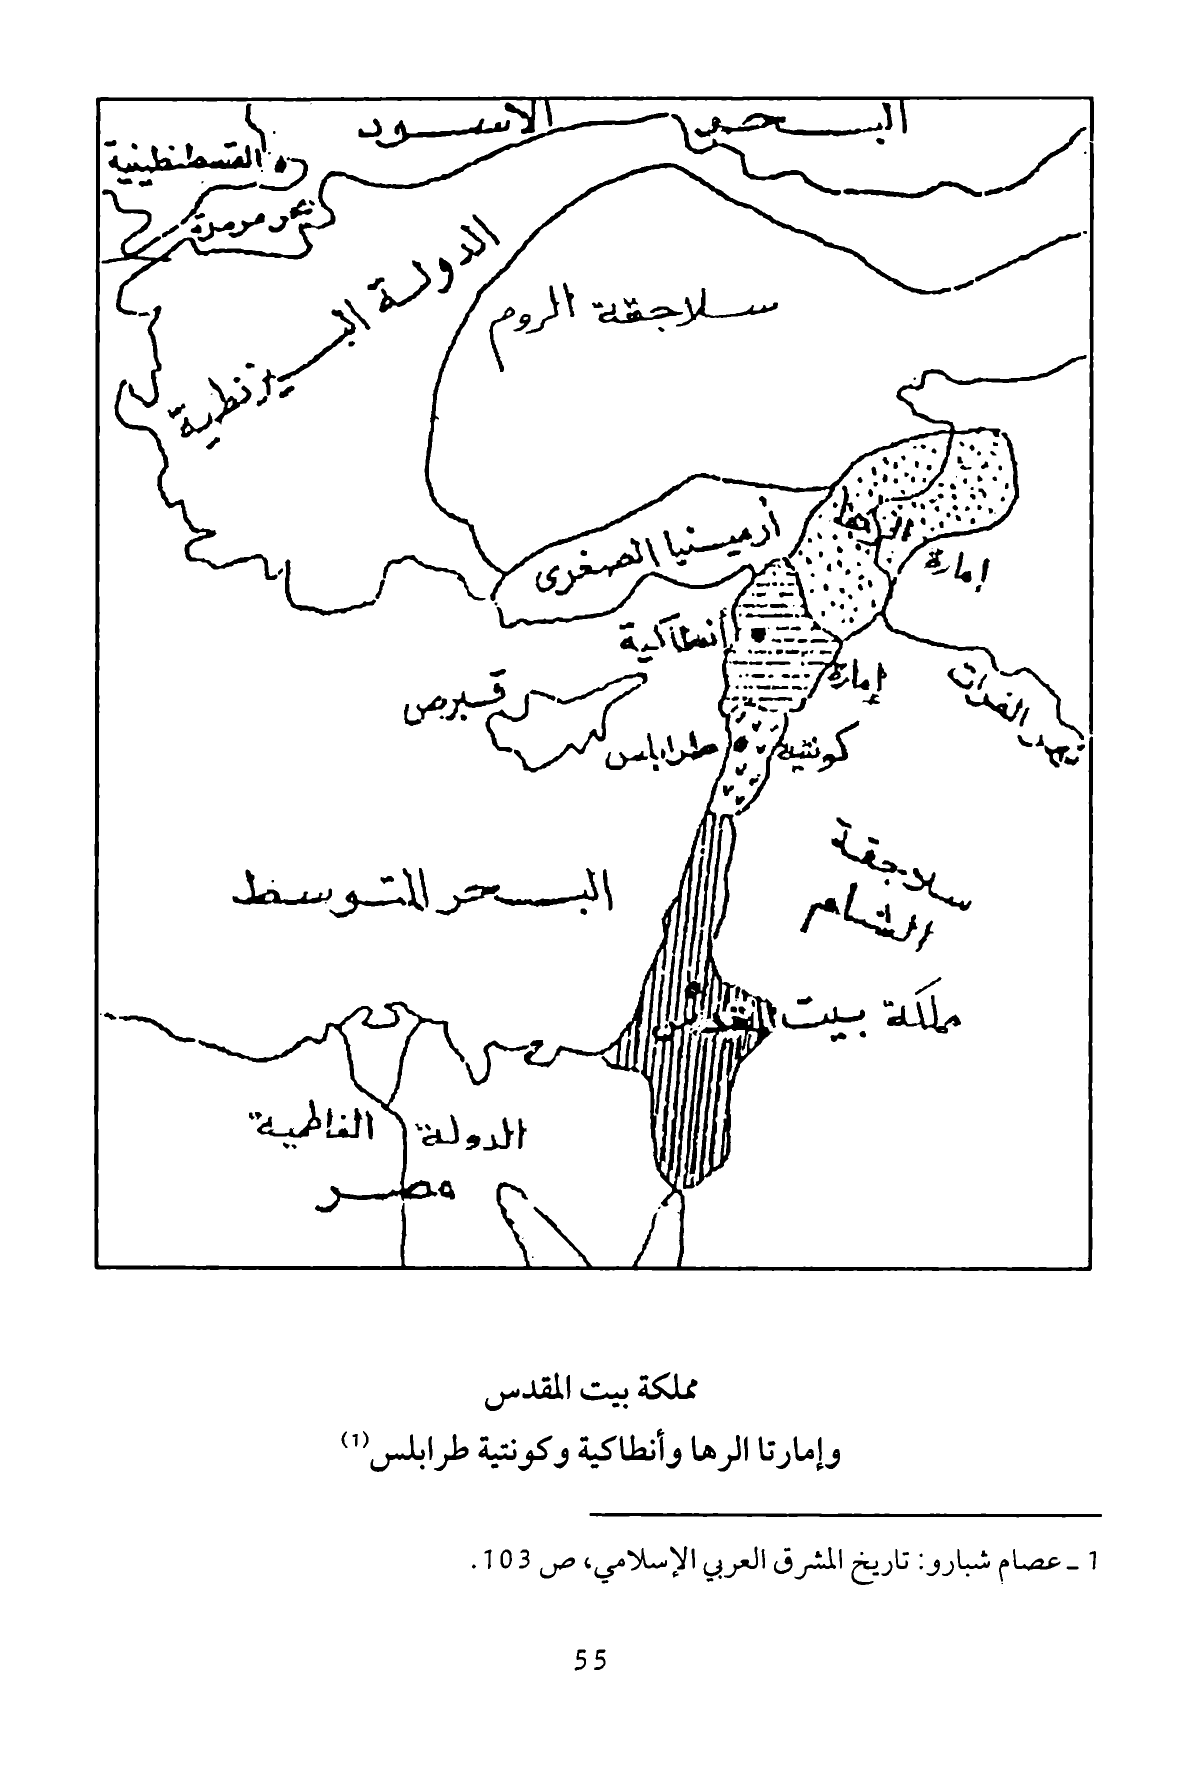 البحر الأسود
القسطنطينية
بحر مرمرة
الدولة البيزنطية
سلاجقة الروم
أرمينيا الصغرى
إمارة الرها
إمارة أنطاكية
قبرص
نهر الفرات
كونتية طرابلس
سلاجقة
الشام
البحر المتوسط
مملكة بيت المقدس
الدولة الفاطمية
مصر
مملكة بيت المقدس
وإمارتا الرها وأنطاكية وكونتية طرابلس(1)
1 ـ عصام شبارو: تاريخ المشرق العربي الإسلامي، ص 103.
55